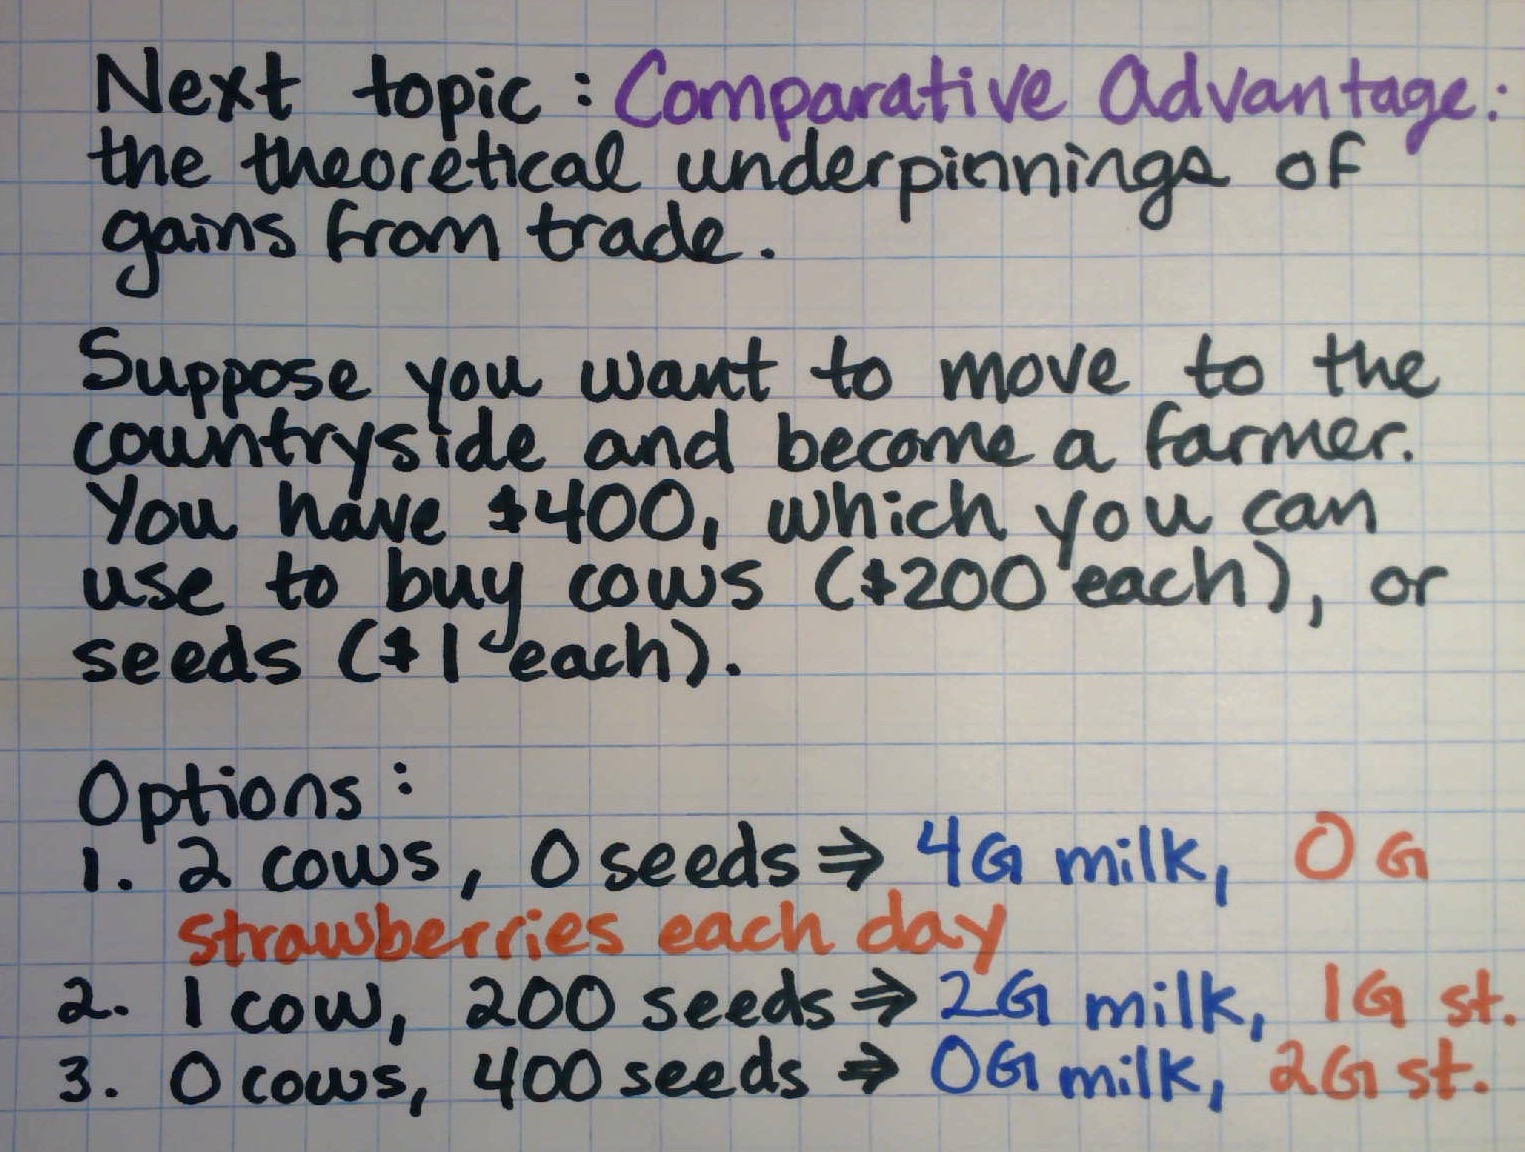 Next topic: Comparative Advantage:
the theoretical underpinnings of
gains from trade.
Suppose you want to move to the
countryside and become a farmer.
You have $400, which you can
use to buy cows ($200 each), or
seeds ($1 each).
Options:
1. 2 cows, 0 seeds ⇒ 4G milk, 0 G
strawberries each day
2. 1 cow, 200 seeds ⇒ 2G milk, 1G st.
3. 0 cows, 400 seeds ⇒ 0G milk, 2G st.